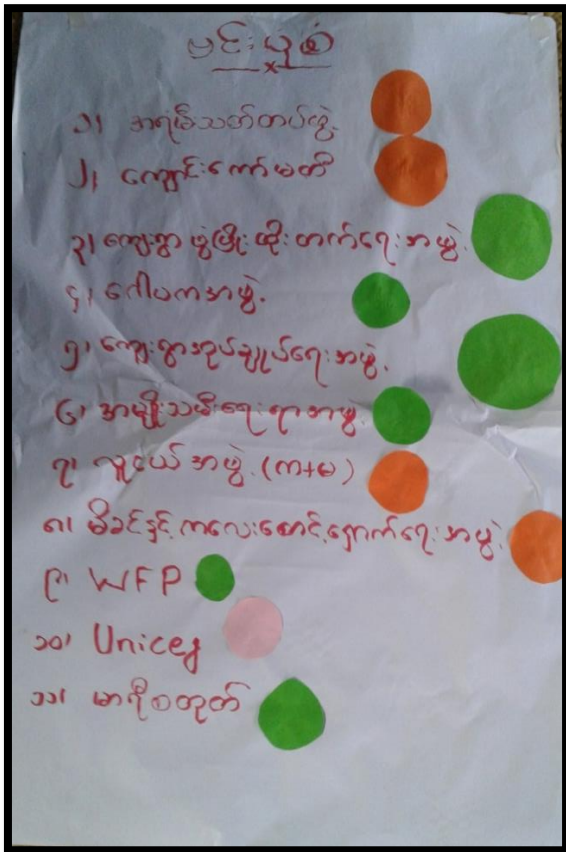 မင်းပုစံ
၁၊ အရံမီးသတ်တပ်ဖွဲ့
၂၊ ကျောင်းကော်မတီ
၃၊ ကျေးရွာ ဖွံ့ဖြိုးတိုးတက်ရေးအဖွဲ့
၄၊ ဂေါပကအဖွဲ့
၅၊ ကျေးရွာအုပ်ချုပ်ရေးအဖွဲ့
၆၊ အမျိုးသမီးရေးရာအဖွဲ့
၇၊ လူငယ်အဖွဲ့ (က+မ)
၈၊ မိခင်နှင့်ကလေးစောင့်ရှောက်ရေးအဖွဲ့
၉၊ WFP
၁၀၊ Unicef
၁၁၊ မာရီစတုတ်